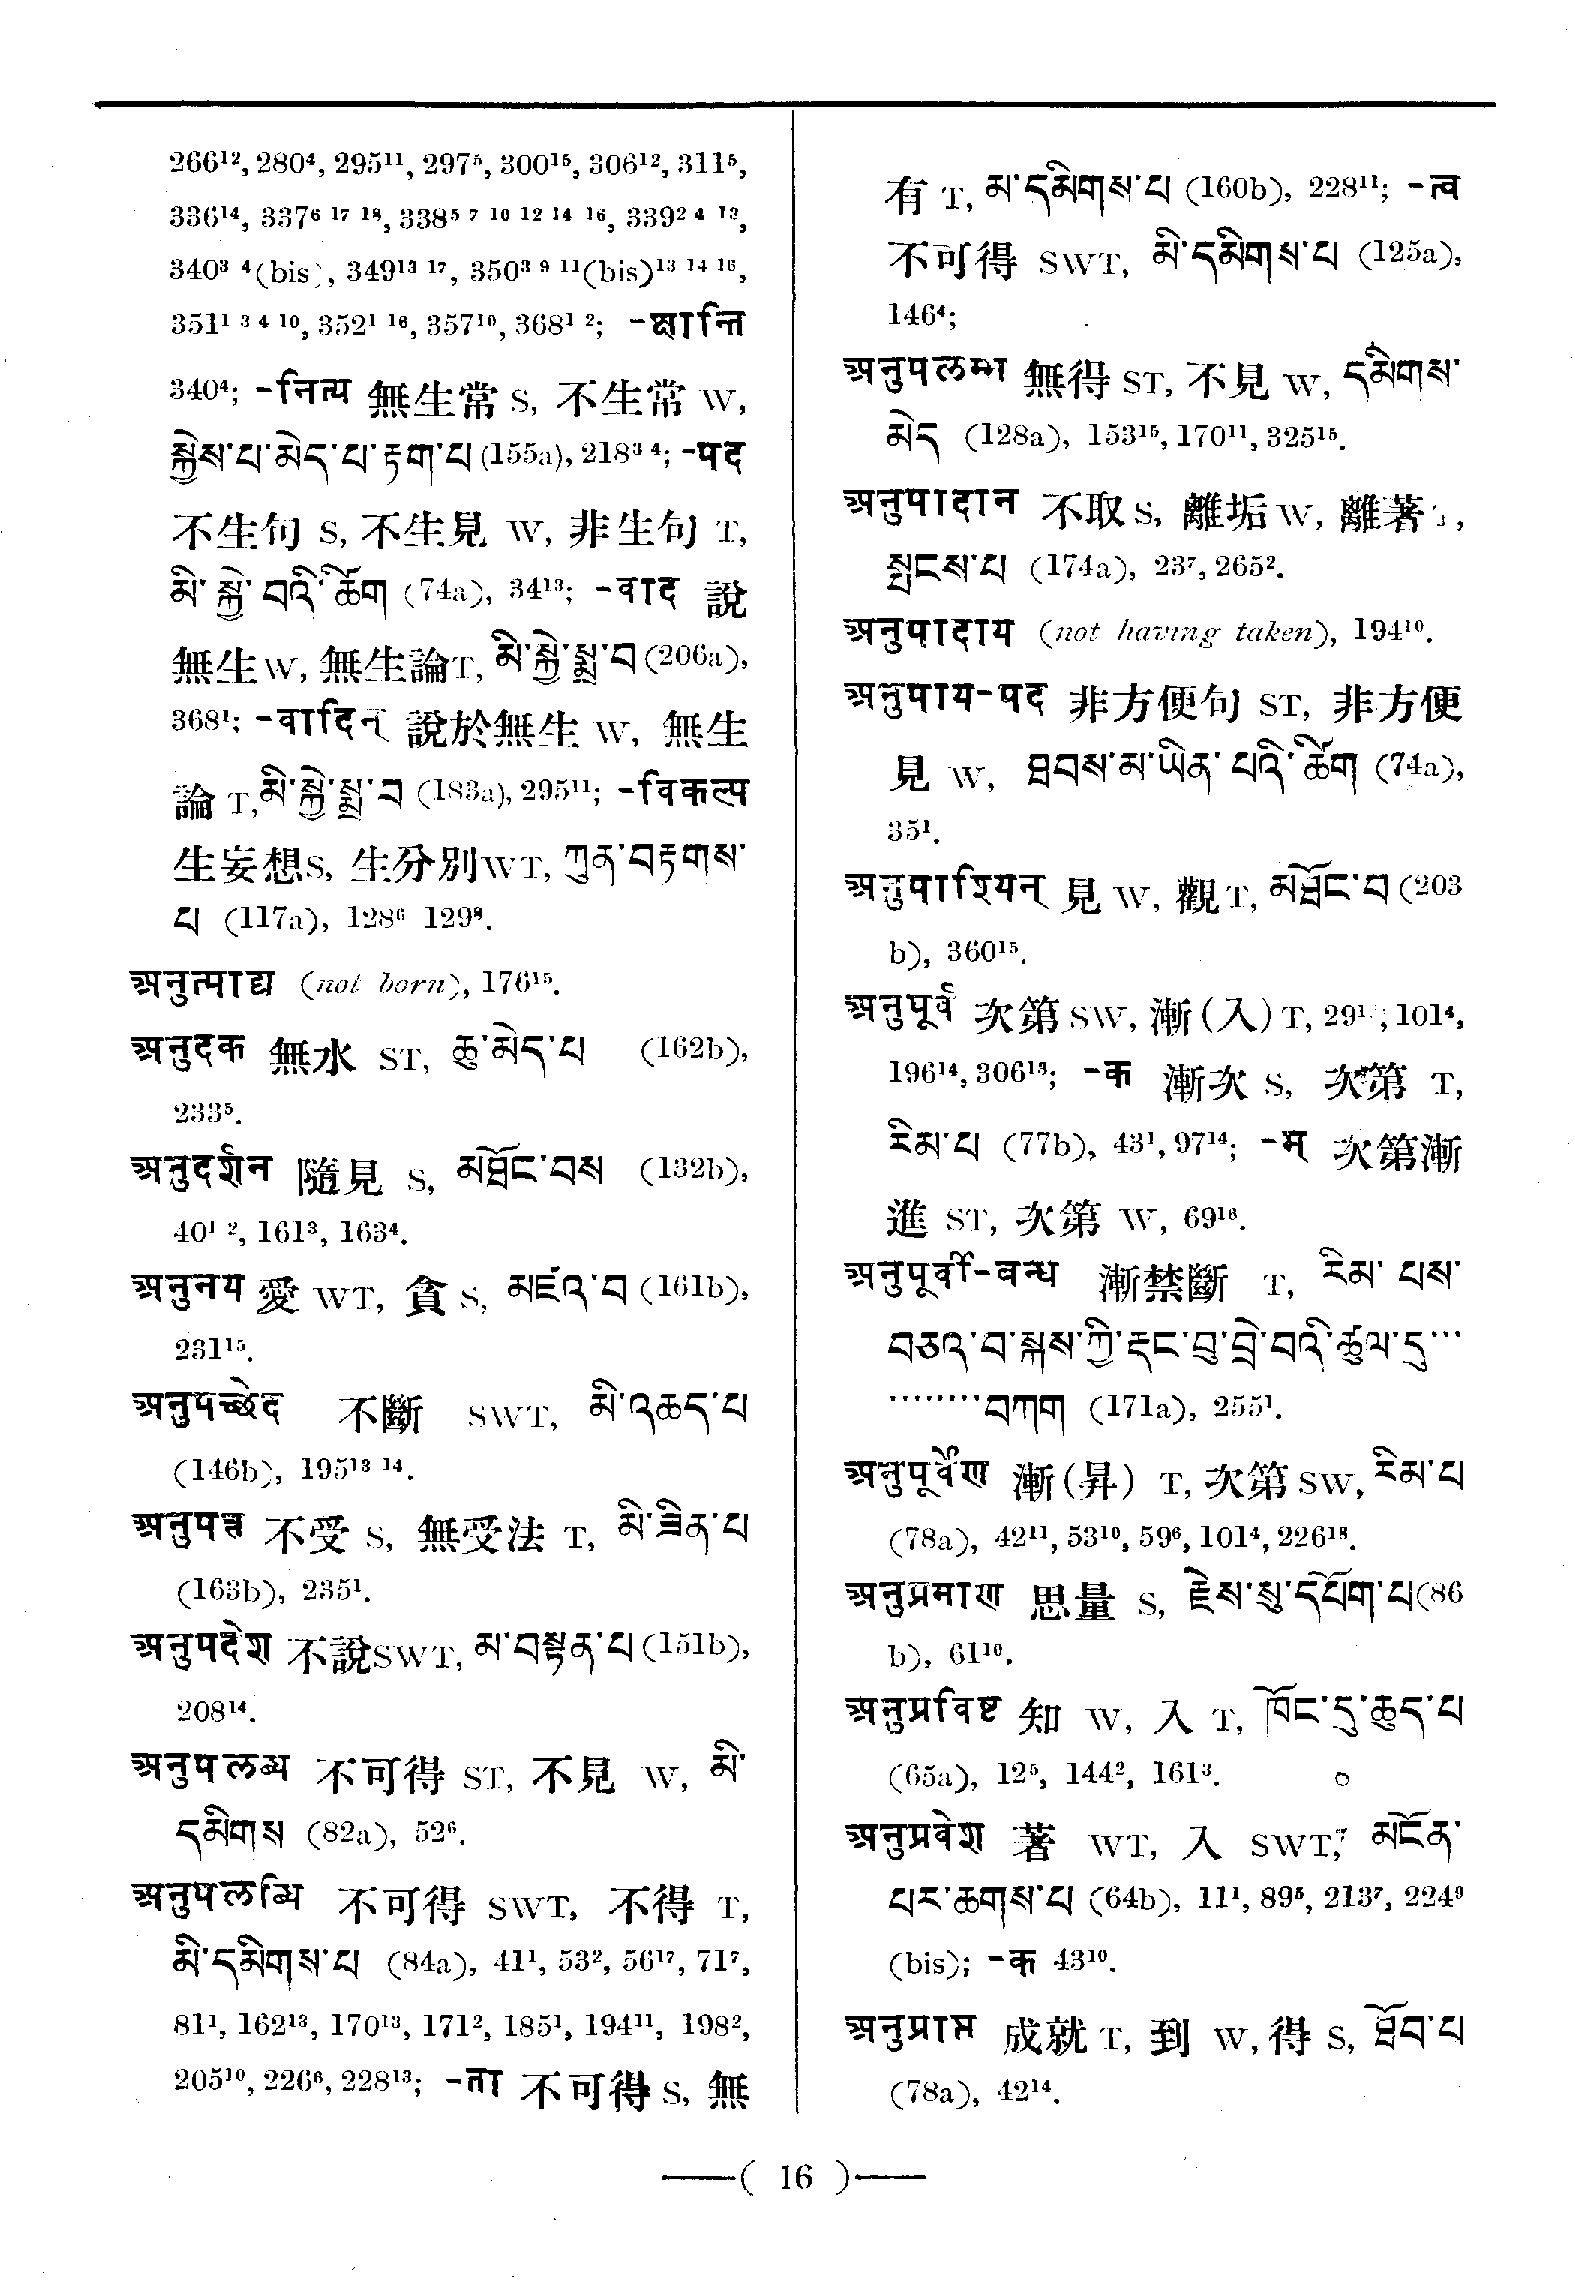 266¹², 280⁴, 295¹¹, 297⁵, 300¹⁵, 306¹², 311⁵,
336¹⁴, 337⁶ ¹⁷ ¹⁸, 338⁵ ⁷ ¹⁰ ¹² ¹⁴ ¹⁶, 339² ⁴ ¹³,
340³ ⁴(bis), 349¹³ ¹⁷, 350³ ⁹ ¹¹(bis)¹³ ¹⁴ ¹⁶,
351¹ ³ ⁴ ¹⁰, 352¹ ¹⁶, 357¹⁰, 368¹ ²; -क्षान्ति
340⁴; -नित्य 無生常 S, 不生常 W,
སྐྱེས་པ་མེད་པ་རྟག་པ (155a), 218³ ⁴; -पद
不生句 S, 不生見 W, 非生句 T,
མི་སྐྱེ་བའི་ཚིག (74a), 34¹³; -वाद 說
無生 W, 無生論 T, མི་སྐྱེ་སྨྲ་བ (206a),
368¹; -वादिन् 說於無生 W, 無生
論 T, མི་སྐྱེ་སྨྲ་བ (183a), 295¹¹; -विकल्प
生妄想 S, 生分別 WT, ཀུན་བརྟགས་
པ (117a), 128⁶ 129⁸.
अनुत्पाद्य (not born), 176¹⁵.
अनुदक 無水 ST, ཆུ་མེད་པ (162b),
233⁵.
अनुदर्शन 隨見 S, མཐོང་བས (132b),
40¹ ², 161³, 163⁴.
अनुनय 愛 WT, 貪 S, མཛའ་བ (161b),
231¹⁵.
अनुपच्छेद 不斷 SWT, མི་འཆད་པ
(146b), 195¹³ ¹⁴.
अनुपन्न 不受 S, 無受法 T, མི་ཟིན་པ
(163b), 235¹.
अनुपदेश 不說 SWT, མ་བསྟན་པ (151b),
208¹⁴.
अनुपलब्ध 不可得 ST, 不見 W, མི་
དམིགས (82a), 52⁶.
अनुपलब्धि 不可得 SWT, 不得 T,
མི་དམིགས་པ (84a), 41¹, 53², 56¹⁷, 71⁷,
81¹, 162¹³, 170¹³, 171², 185¹, 194¹¹, 198²,
205¹⁰, 226⁶, 228¹³; -ता 不可得 S, 無
有 T, མ་དམིགས་པ (160b), 228¹¹; -त्व
不可得 SWT, མི་དམིགས་པ (125a),
146⁴;
अनुपलम्भ 無得 ST, 不見 W, དམིགས་
མེད (128a), 153¹⁵, 170¹¹, 325¹⁵.
अनुपादान 不取 S, 離垢 W, 離著 T,
སྤངས་པ (174a), 23⁷, 265².
अनुपादाय (not having taken), 194¹⁰.
अनुपाय-पद 非方便句 ST, 非方便
見 W, ཐབས་མ་ཡིན་པའི་ཚིག (74a),
35¹.
अनुपाश्यिन् 見 W, 觀 T, མཐོང་བ (203
b), 360¹⁵.
अनुपूर्व 次第 SW, 漸(入) T, 29¹; 101⁴,
196¹⁴, 306¹³; -क 漸次 S, 次第 T,
རིམ་པ (77b), 43¹, 97¹⁴; -म 次第漸
進 ST, 次第 W, 69¹⁶.
अनुपूर्वी-बन्ध 漸禁斷 T, རིམ་པས་
བཅའ་བ་སྐས་ཀྱི་རྡང་བུ་བྲེ་བའི་ཚུལ་དུ…
………བཀག (171a), 255¹.
अनुपूर्वेण 漸(昇) T, 次第 SW, རིམ་པ
(78a), 42¹¹, 53¹⁰, 59⁶, 101⁴, 226¹⁸.
अनुप्रमाण 思量 S, རྗེས་སུ་དཔོག་པ (86
b), 61¹⁰.
अनुप्रविष्ट 知 W, 入 T, ཁོང་དུ་ཆུད་པ
(65a), 12⁵, 144², 161³.
अनुप्रवेश 著 WT, 入 SWT, མངོན་
པར་ཆགས་པ (64b), 11¹, 89⁵, 213⁷, 224⁹
(bis); -क 43¹⁰.
अनुप्राप्त 成就 T, 到 W, 得 S, ཐོབ་པ
(78a), 42¹⁴.
( 16 )